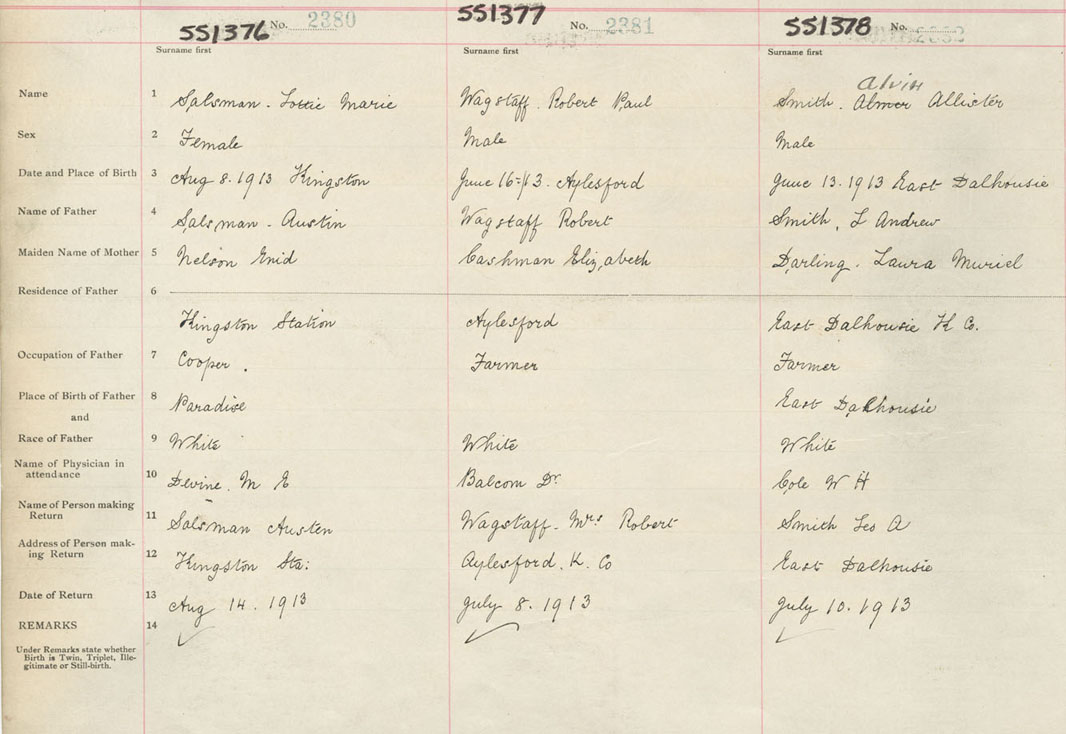 551376 No. 2380 551377 No. 2381 551378 No.
Surname first Surname first Surname first
alvin
Name 1 Salsman - Lottie Marie Wagstaff. Robert Paul Smith. Almer Allister
Sex 2 Female Male Male
Date and Place of Birth 3 Aug 8. 1913 Kingston June 16-13. Aylesford June 13. 1913 East Dalhousie
Name of Father 4 Salsman - Austin Wagstaff Robert Smith, L Andrew
Maiden Name of Mother 5 Nelson Enid Cashman Elizabeth Darling. Laura Muriel
Residence of Father 6
Kingston Station Aylesford East Dalhousie K Co.
Occupation of Father 7 Cooper. Farmer Farmer
Place of Birth of Father 8 Paradise East Dalhousie
and
Race of Father 9 White White White
Name of Physician in
attendance 10 Devine. M E Balcom Dr. Cole W H
Name of Person making
Return 11 Salsman Austen Wagstaff. Mrs Robert Smith Leo A
Address of Person mak-
ing Return 12 Kingston Sta: Aylesford. K. Co East Dalhousie
Date of Return 13 Aug 14. 1913 July 8. 1913 July 10. 1913
REMARKS 14
Under Remarks state whether
Birth is Twin, Triplet, Ille-
gitimate or Still-birth.